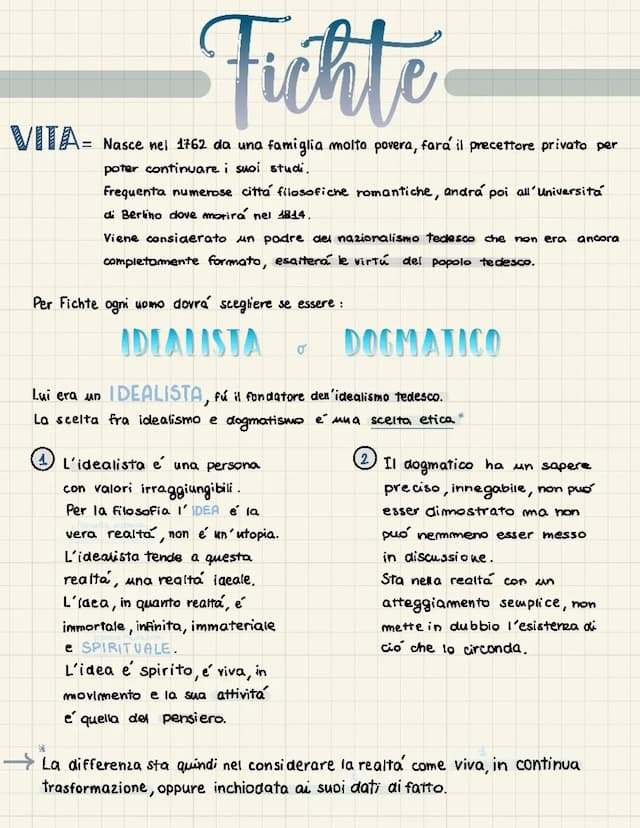 Fichte
VITA= Nasce nel 1762 da una famiglia molto povera, fará il precettore privato per
poter continuare i suoi studi.
Frequenta numerose cittá filosofiche romantiche, andrá poi all'Universitá
di Berlino dove morirá nel 1814.
Viene considerato un padre del nazionalismo tedesco che non era ancora
completamente formato, esalterá le virtú del popolo tedesco.
Per Fichte ogni uomo dovrá scegliere se essere:
IDEALISTA o DOGMATICO
Lui era un IDEALISTA, fú il fondatore dell'idealismo tedesco.
La scelta fra idealismo e dogmatismo é una scelta etica.*
1 L'idealista é una persona
con valori irraggiungibili.
Per la filosofia l'IDEA é la
vera realtá, non é un'utopia.
L'idealista tende a questa
realtá, una realtá ideale.
L'idea, in quanto realtá, é
immortale, infinita, immateriale
e SPIRITUALE.
L'idea é spirito, é viva, in
movimento e la sua attivitá
é quella del pensiero.
2 Il dogmatico ha un sapere
preciso, innegabile, non puó
esser dimostrato ma non
puó nemmeno esser messo
in discussione.
Sta nella realtá con un
atteggiamento semplice, non
mette in dubbio l'esistenza di
ció che lo circonda.
* → La differenza sta quindi nel considerare la realtá come viva, in continua
trasformazione, oppure inchiodata ai suoi dati di fatto.